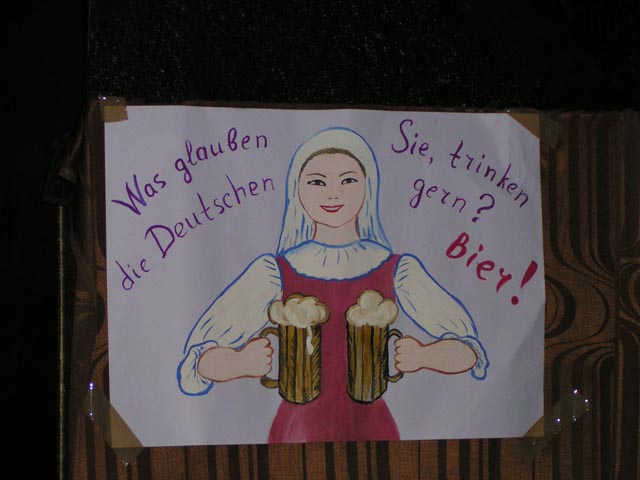 Was glauben
die Deutschen
Sie, trinken
gern?
Bier!